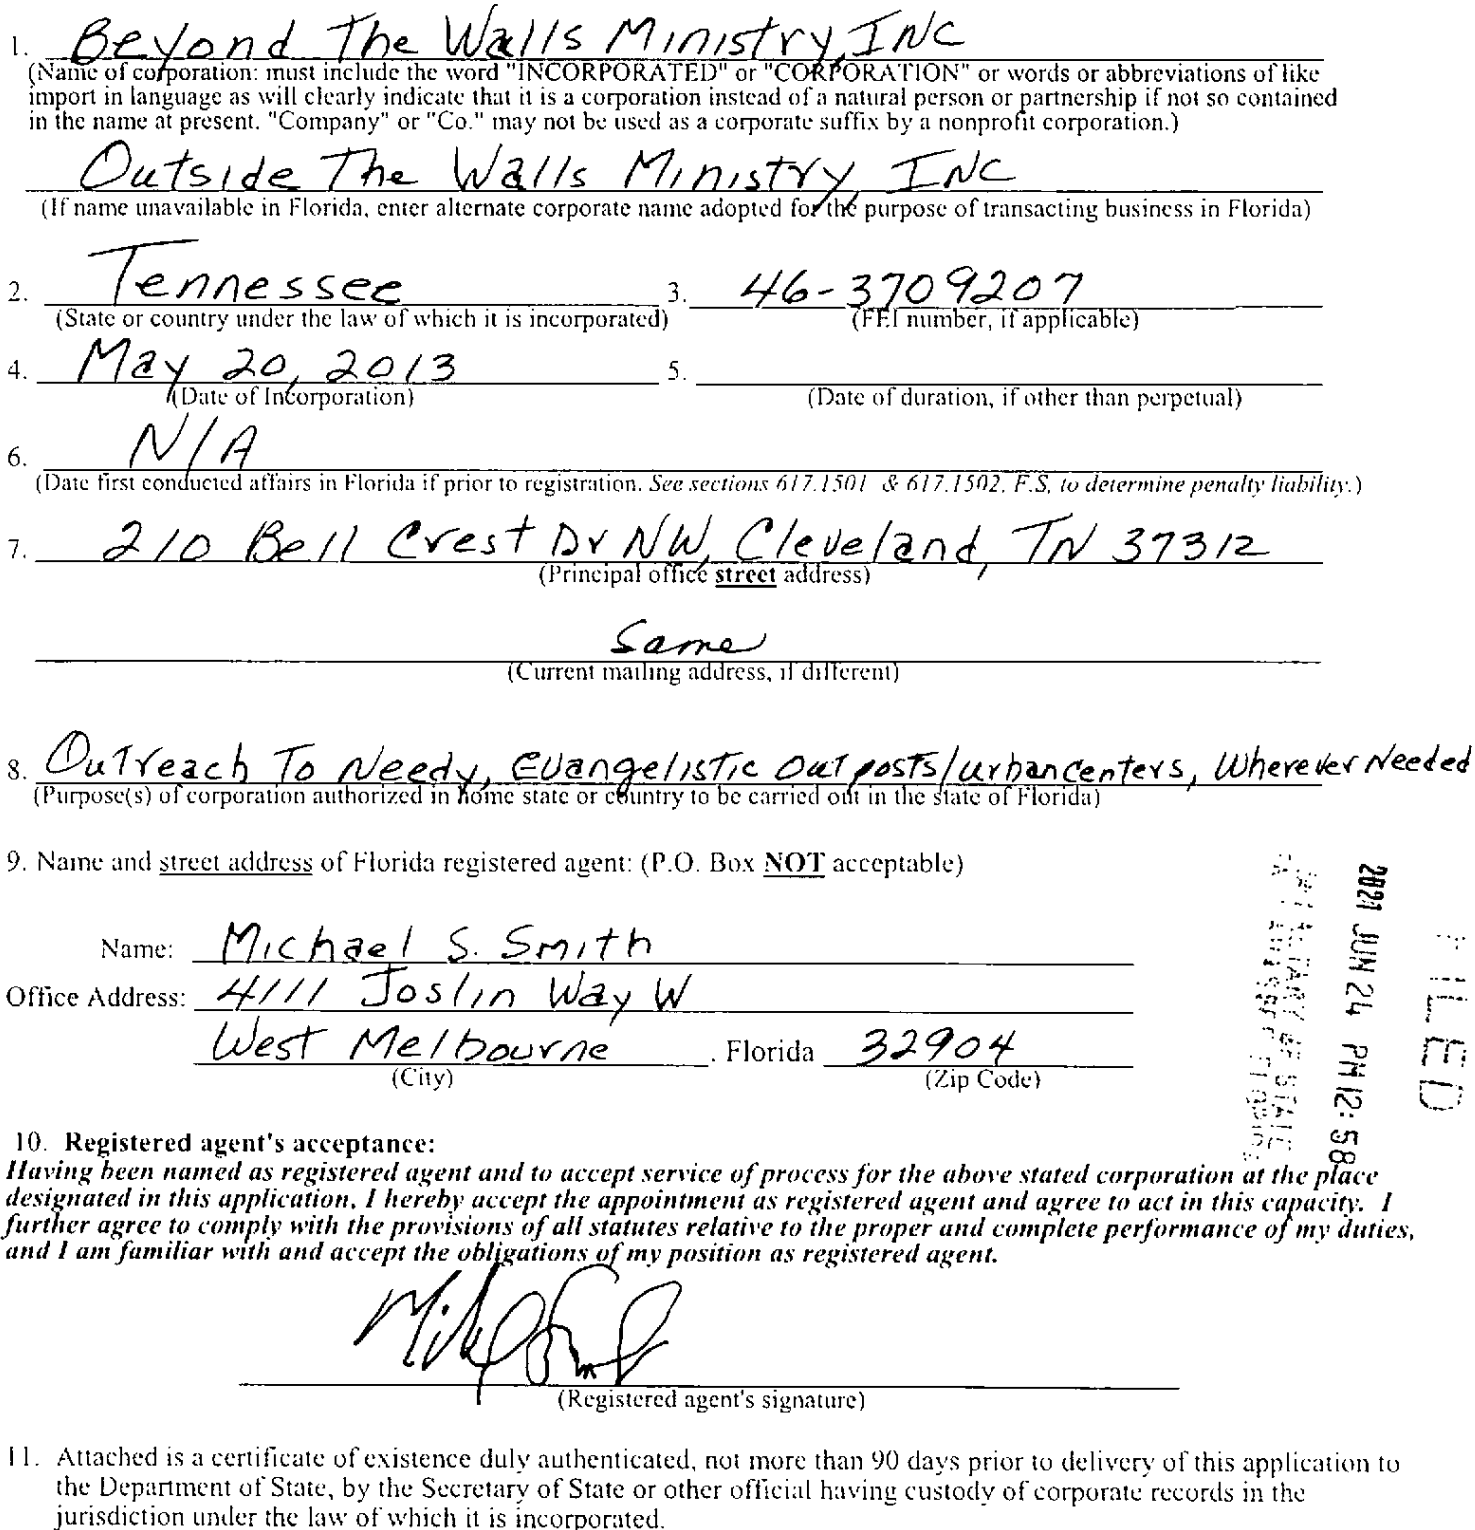 1. Beyond The Walls Ministry, INC
(Name of corporation: must include the word "INCORPORATED" or "CORPORATION" or words or abbreviations of like
import in language as will clearly indicate that it is a corporation instead of a natural person or partnership if not so contained
in the name at present. "Company" or "Co." may not be used as a corporate suffix by a nonprofit corporation.)
Outside The Walls Ministry, INC
(If name unavailable in Florida, enter alternate corporate name adopted for the purpose of transacting business in Florida)
2. Tennessee 3. 46-3709207
(State or country under the law of which it is incorporated) (FEI number, if applicable)
4. May 20, 2013 5.
(Date of Incorporation) (Date of duration, if other than perpetual)
6. N/A
(Date first conducted affairs in Florida if prior to registration. See sections 617.1501 & 617.1502, F.S, to determine penalty liability.)
7. 210 Bell Crest Dr NW, Cleveland, TN 37312
(Principal office street address)
Same
(Current mailing address, if different)
8. Outreach To Needy, Evangelistic Outposts/urban centers, Wherever Needed
(Purpose(s) of corporation authorized in home state or country to be carried out in the state of Florida)
9. Name and street address of Florida registered agent: (P.O. Box NOT acceptable)
Name: Michael S. Smith
Office Address: 4111 Joslin Way W
West Melbourne, Florida 32904
(City) (Zip Code)
FILED
2021 JUN 24 PM 12:58
10. Registered agent's acceptance:
Having been named as registered agent and to accept service of process for the above stated corporation at the place
designated in this application, I hereby accept the appointment as registered agent and agree to act in this capacity. I
further agree to comply with the provisions of all statutes relative to the proper and complete performance of my duties,
and I am familiar with and accept the obligations of my position as registered agent.
(Registered agent's signature)
11. Attached is a certificate of existence duly authenticated, not more than 90 days prior to delivery of this application to
the Department of State, by the Secretary of State or other official having custody of corporate records in the
jurisdiction under the law of which it is incorporated.